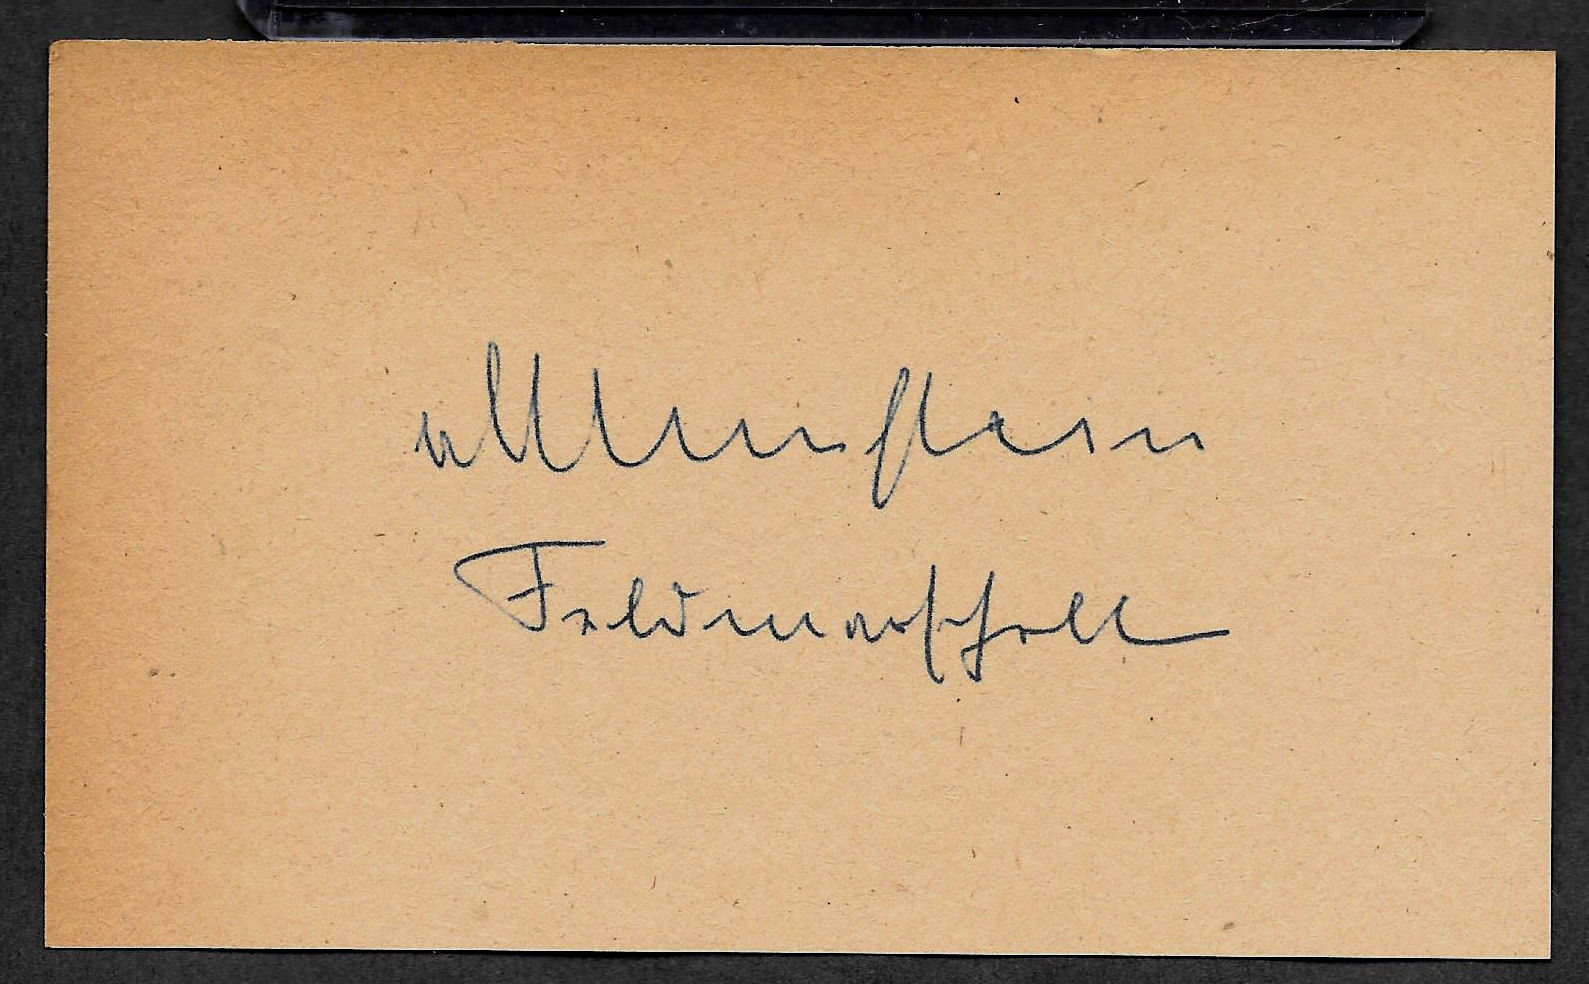 vManstein
Feldmarschall